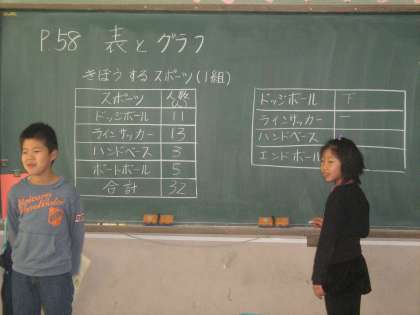 P.58 表とグラフ
きぼうするスポーツ(1組)
スポーツ 人数(人)
ドッジボール 11
ラインサッカー 13
ハンドベース 3
ポートボール 5
合計 32
ドッジボール 下
ラインサッカー 一
ハンドベース
エンドボール